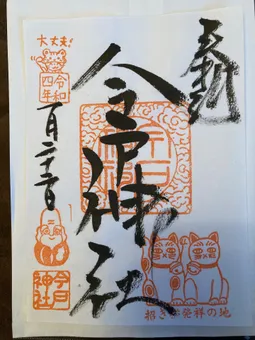 奉拝
今戸神社
大丈夫
令和四年
今戸神社
招き猫発祥の地